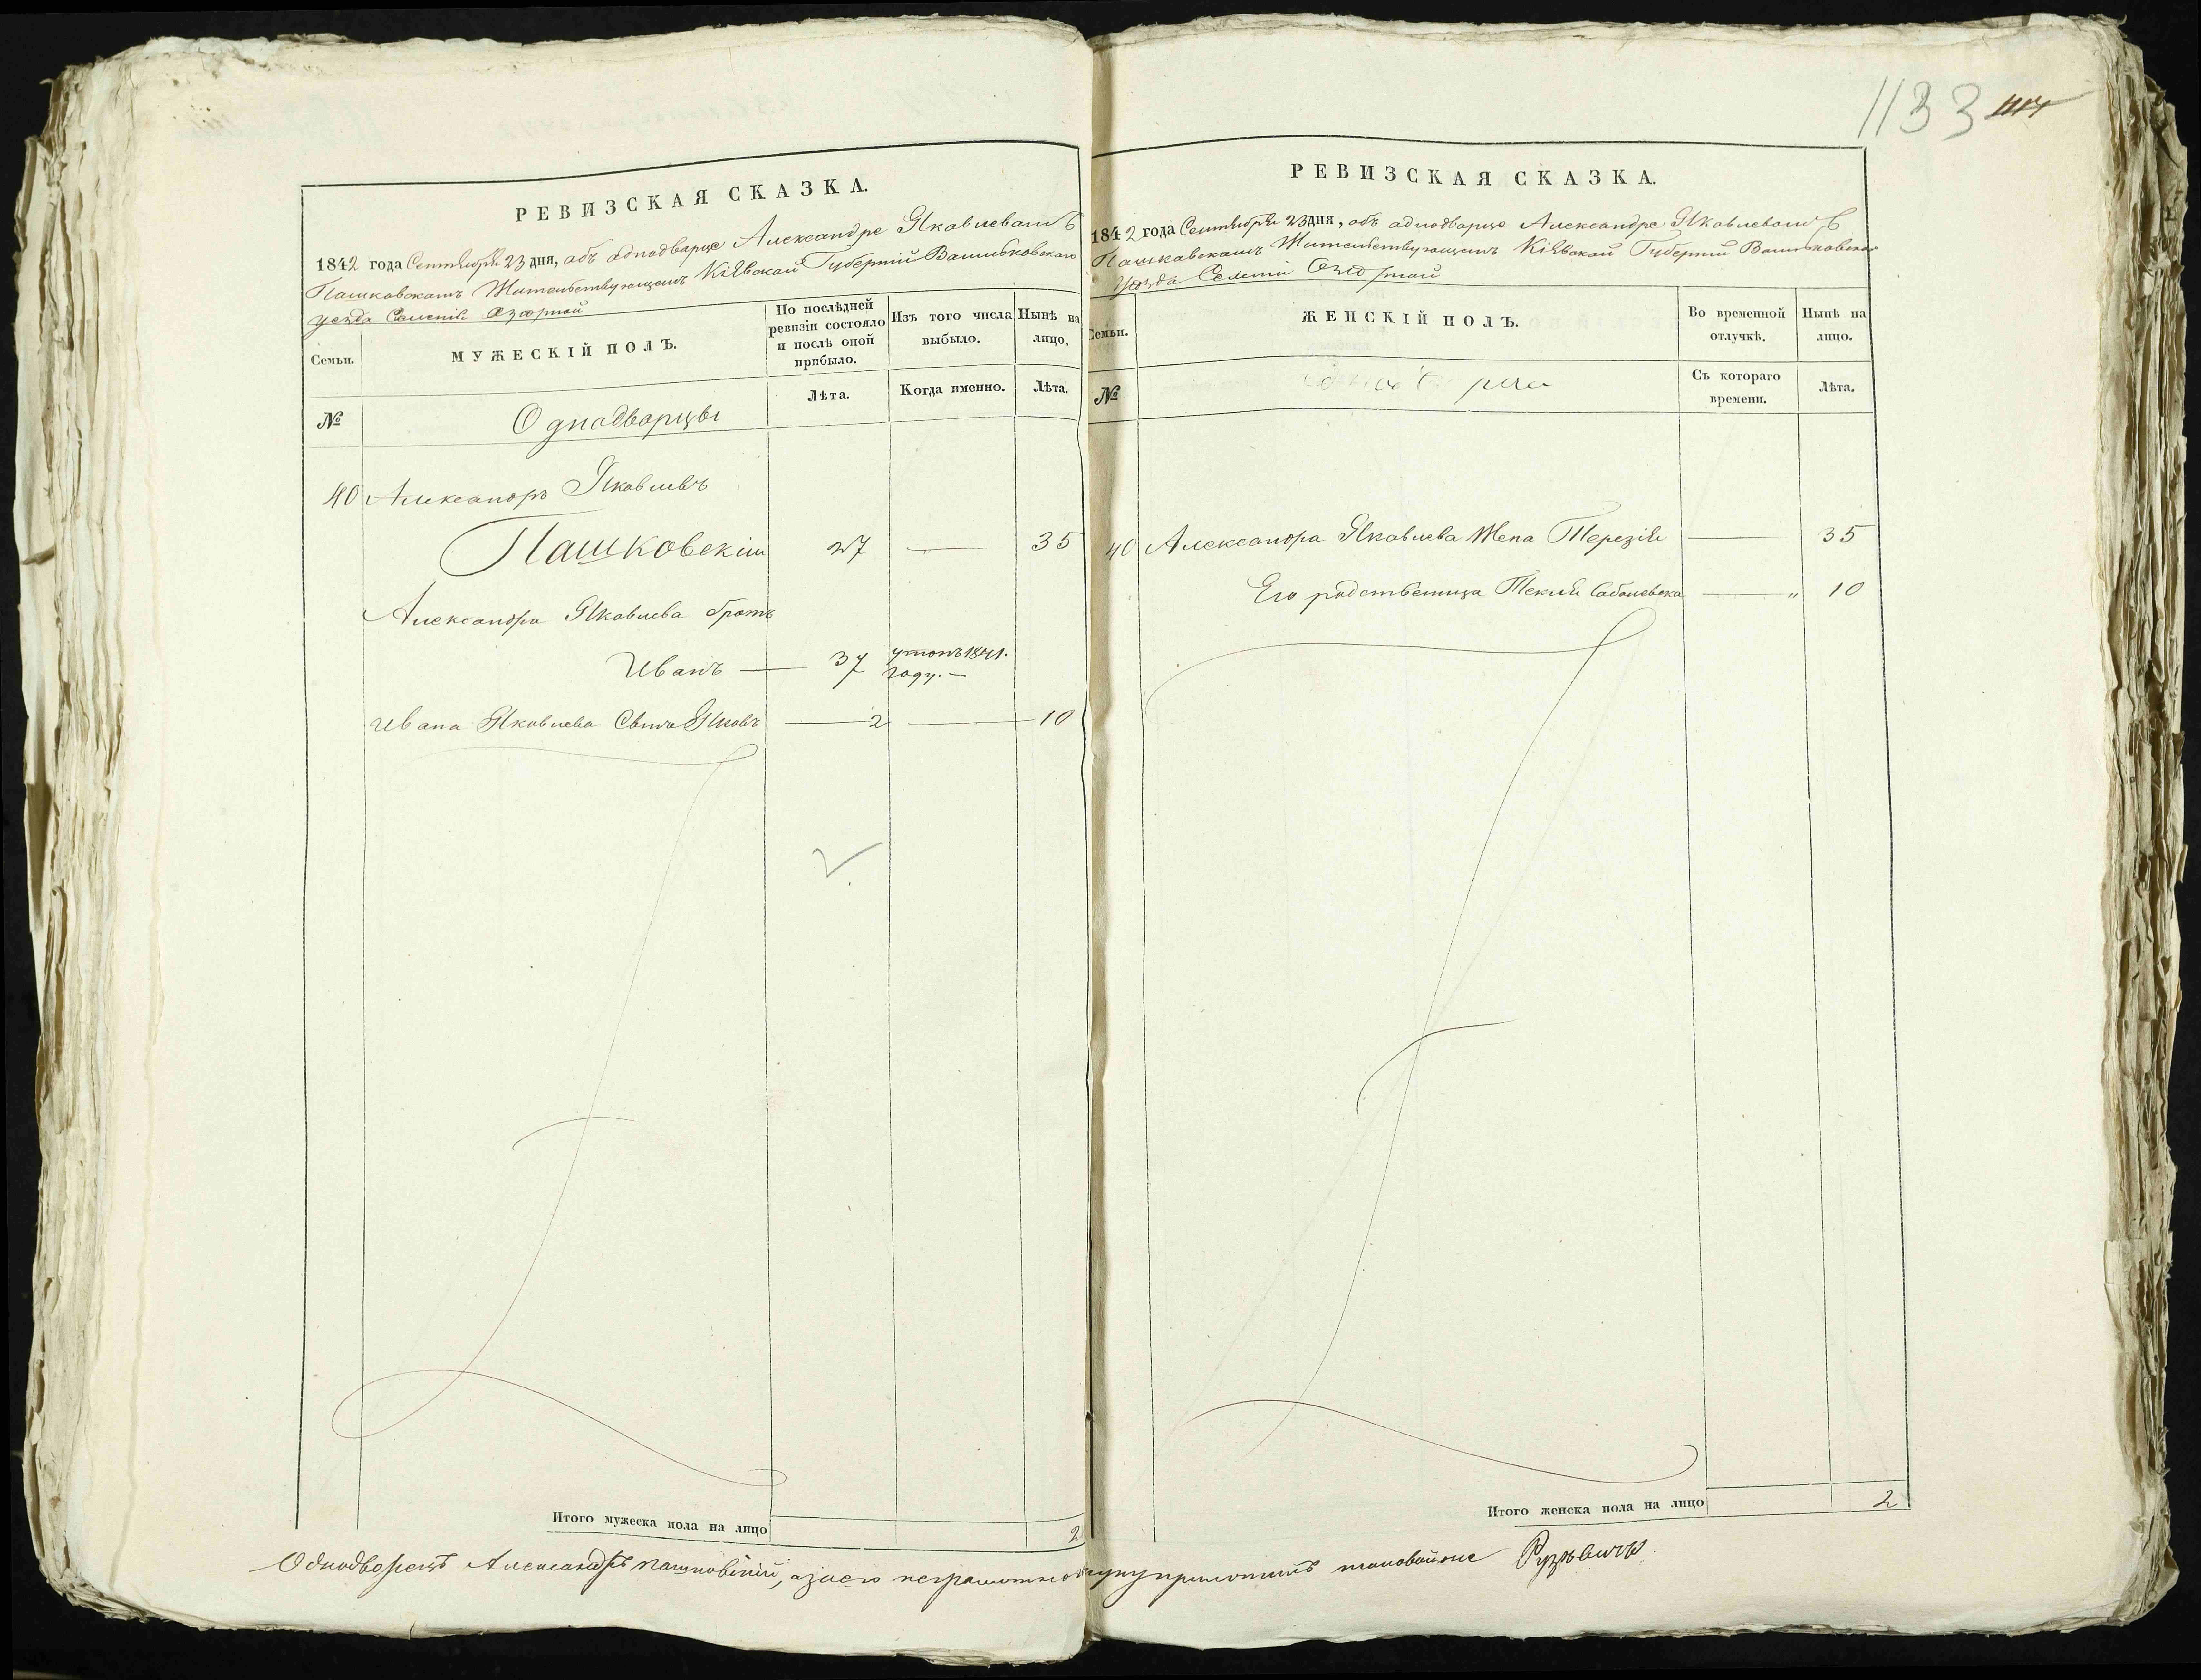 РЕВИЗСКАЯ СКАЗКА.
1842 года Сентября 23 дня, объ аднодварце Александре Яковлевамъ
Пашковскамъ Жительствующемъ Кіевской Губерніи Васильковскаго
уезда Селенія Озюрной
Семьи.
МУЖЕСКІЙ ПОЛЪ.
По послѣдней ревизіи состояло и послѣ оной прибыло.
Изъ того числа выбыло.
Нынѣ на лицо.
№
Лѣта.
Когда именно.
Лѣта.
Однодворцы
40 Александръ Яковлевъ
Пашковскій 27 — 35
Александра Яковлева братъ
Иванъ — 37 1841.
году. —
Ивана Яковлева Сынъ Яковъ — 2 — 10
Итого мужеска пола на лицо 2
1133
РЕВИЗСКАЯ СКАЗКА.
1842 года Сентября 23 дня, объ аднодворце Александре Яковлевомъ
Пашковскамъ Жительствующемъ Кіевской Губерніи Васильковскаго
Уезда Селенія Озюрной
Семьи.
ЖЕНСКІЙ ПОЛЪ.
Во временной отлучкѣ.
Нынѣ на лицо.
№
Съ котораго времени.
Лѣта.
40 Александра Яковлева Жена Терезія — 35
Его родственица Текля Соболевска — " 10
Итого женска пола на лицо 2
Однодворецъ Александръ Пашковскій, а за его неграмотно руку приложилъ Рузѣвичъ